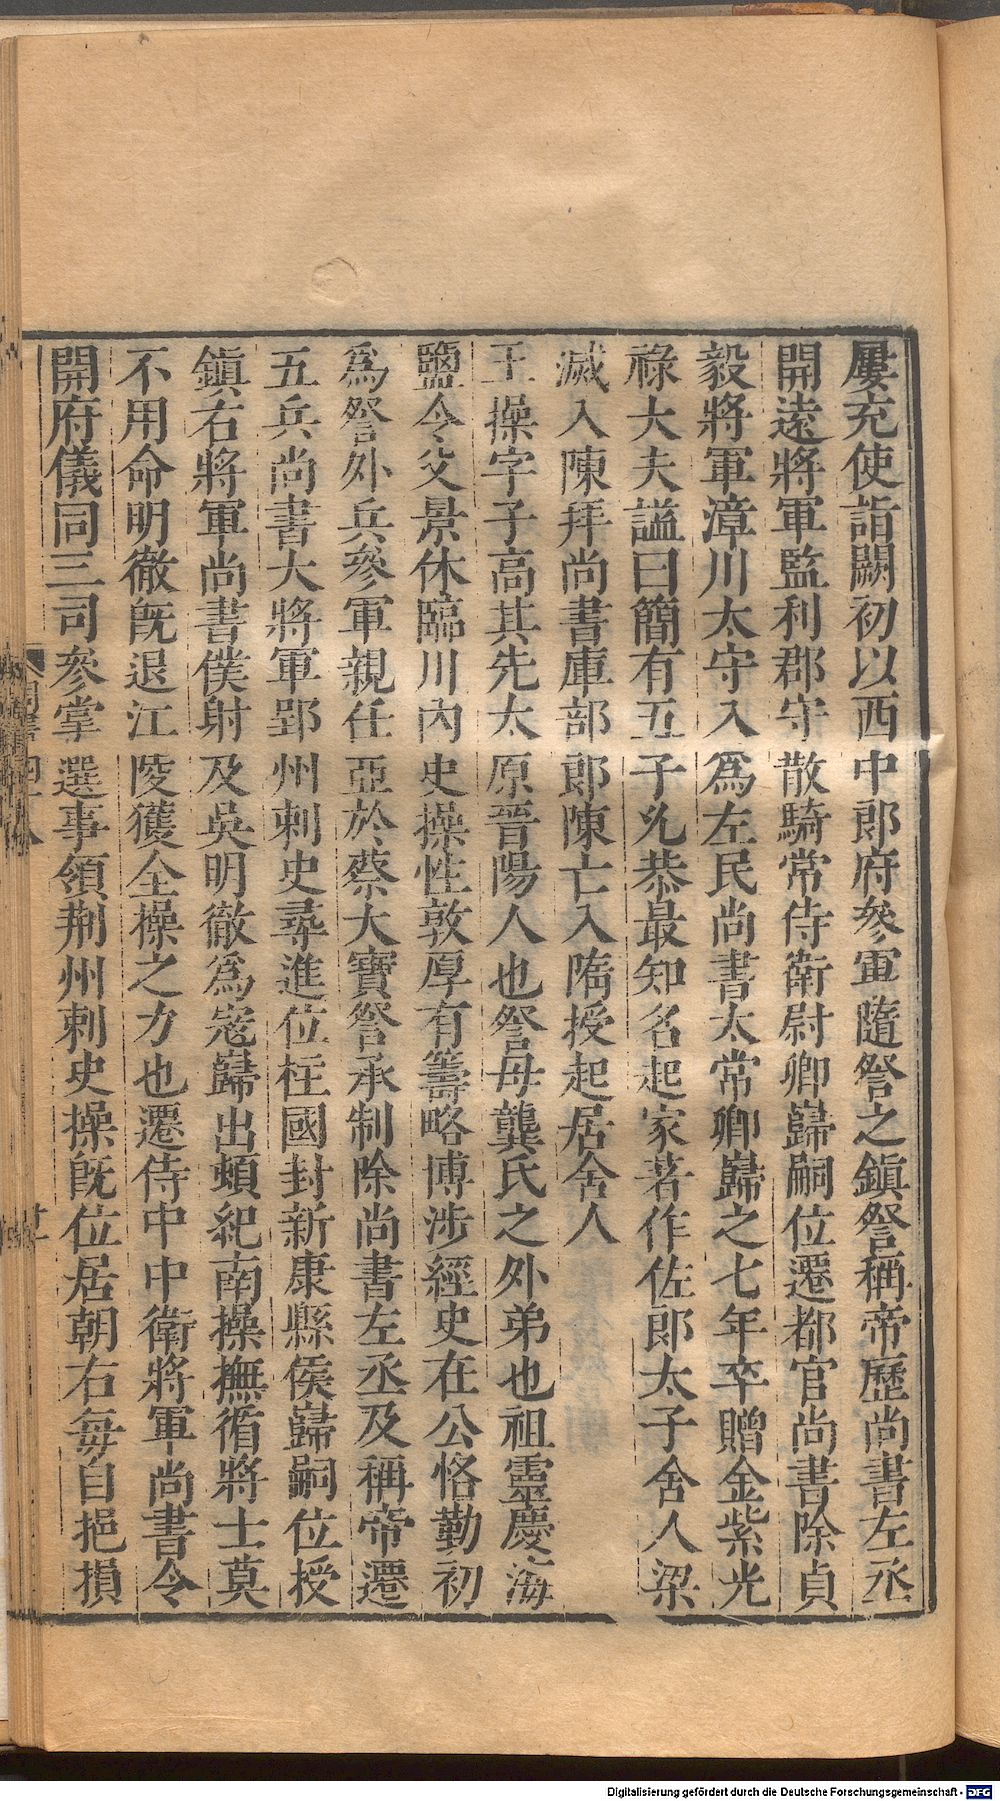 屢充使詣闕初以西中郎府參軍隨詧之鎮詧稱帝歷尚書左丞
開遠將軍監利郡守散騎常侍衛尉卿巋嗣位遷都官尚書除貞
毅將軍漳川太守入爲左民尚書太常卿巋之七年卒贈金紫光
祿大夫謚曰簡有五子允恭最知名起家著作佐郎太子舍人梁
滅入陳拜尚書庫部郎陳亡入隋授起居舍人
王操字子高其先太原晉陽人也詧母龔氏之外弟也祖靈慶海
鹽令父景休臨川內史操性敦厚有籌略博涉經史在公恪勤初
爲詧外兵參軍親任亞於蔡大寶詧承制除尚書左丞及稱帝遷
五兵尚書大將軍郢州刺史尋進位柱國封新康縣侯巋嗣位授
鎮右將軍尚書僕射及吳明徹爲寇巋出頓紀南操撫循將士莫
不用命明徹既退江陵獲全操之力也遷侍中中衛將軍尚書令
開府儀同三司參掌選事領荊州刺史操既位居朝右每自挹損
Digitalisierung gefördert durch die Deutsche Forschungsgemeinschaft - DFG